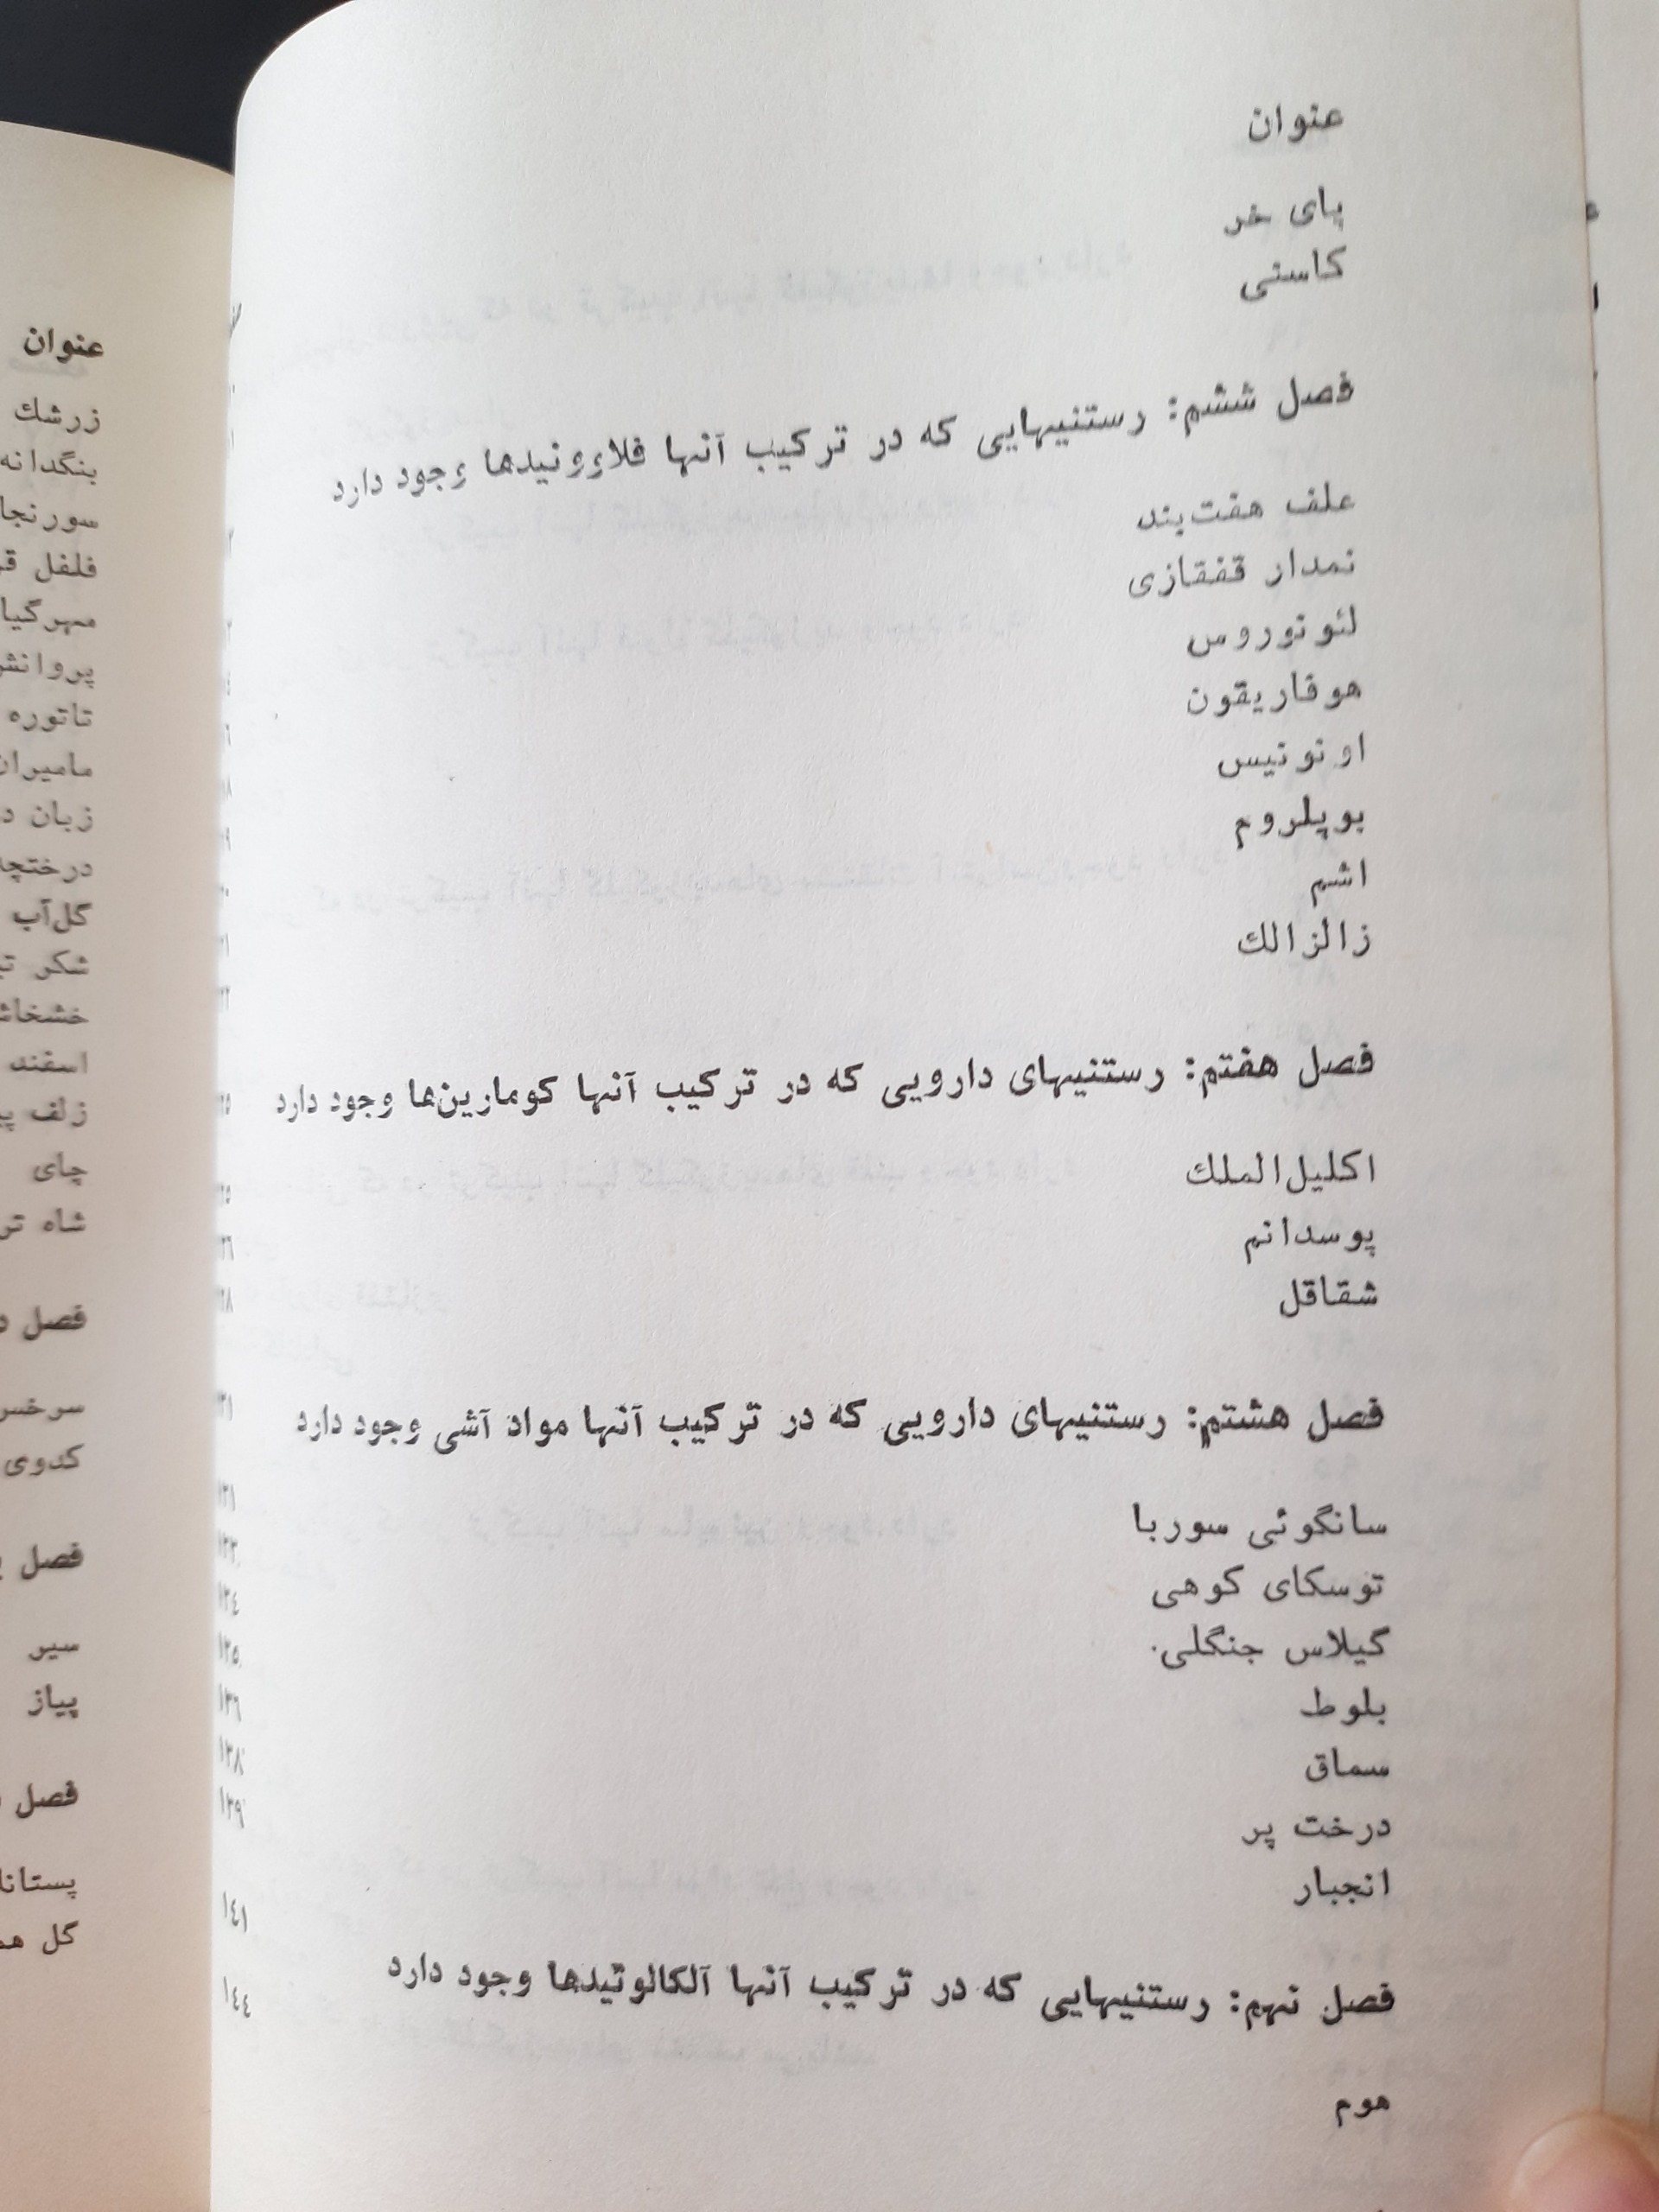 عنوان
پای خر
کاسنی
فصل ششم: رستنیهایی که در ترکیب آنها فلاوونیدها وجود دارد
علف هفت‌بند
نمدار قفقازی
لئونوروس
هوفاریقون
اونونیس
بوپلروم
اشم
زالزالك
فصل هفتم: رستنیهای دارویی که در ترکیب آنها کومارین‌ها وجود دارد
اکلیل‌الملك
پوسدانم
شقاقل
فصل هشتم: رستنیهای دارویی که در ترکیب آنها مواد آشی وجود دارد
سانگوئی سوربا
توسکای کوهی
گیلاس جنگلی
بلوط
سماق
درخت پر
انجبار
فصل نهم: رستنیهایی که در ترکیب آنها آلکالوئیدها وجود دارد
هوم
عنوان
زرشك
بنگدانه
فلفل
تاتوره
زبان
گل‌آب
شکر
اسفند
زلف
چای
شاه
فصل
کدوی
فصل
سیر
پیاز
فصل
گل
۱۳۴
۱۳۵
۱۳۶
۱۳۸
۱۳۹
۱۴۱
۱۴۴